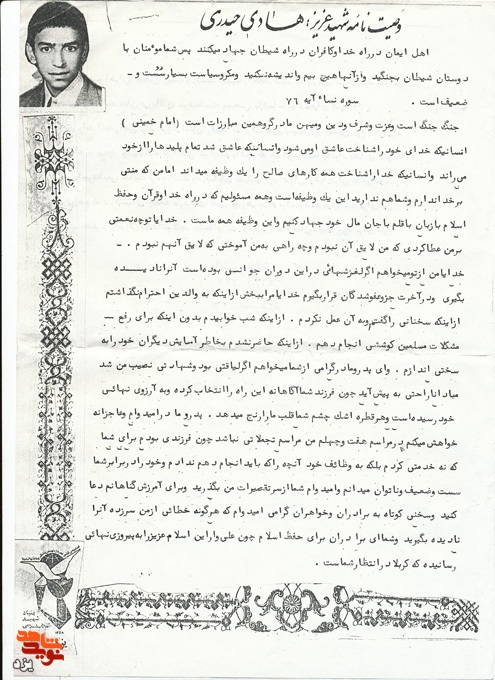 وصیت نامه شهید عزیز: هادی حیدری
اهل ایمان در راه خدا و کافران در راه شیطان جهاد میکنند پس شما مؤمنان با
دوستان شیطان بجنگید و از آنها هیچ بیم و اندیشه نکنید و مکر و سیاست بسیار سست و -
ضعیف است . سوره نساء آیه ۷۶
جنگ جنگ است و عزت و شرف و دین و میهن ما در گرو همین مبارزات است (امام خمینی )
انسانیکه خدای خود را شناخت عاشق او می شود و انسانیکه عاشق شد تمام پلیدها را از خود
می راند و انسانیکه خدا را شناخت همه کارهای صالح را یک وظیفه میداند اما من که منتی
بر خدا ندارم و شما هم ندارید این یک وظیفه است و همه مسئولیم که در راه خدا و قرآن و حفظ
اسلام با زبان با قلم با جان مال خود جهاد کنیم و این وظیفه همه ماست . خدایا تو چه نعمتی
بر من عطا کردی که من لایق آن نبودم و چه راهی به من آموختی که لایق آنهم نبودم . -
خدایا من از تو میخواهم اگر لغزشهائی در این دوران جوانسی بوده است آنرا نادیـــده
بگیری و در آخرت جزو عفو شدگان قرار بگیرم خدایا مرا ببخش از اینکه به والدین احترام نگذاشتم
از اینکه سخنانی را گفتم و به آن عمل نکردم . از اینکه شب خوابیدم بدون اینکه برای رفع -
مشکلات مسلمین کوششی انجام دهم . از اینکه حاضر نشدم بخاطر آسایش دیگران خود را به
سختی اندازم . وای پدر و مادر گرامی از شما میخواهم اگر لیاقتی بود و شهادتی نصیب من شد
مبادا ناراحتی به پیش آید چون فرزند شما آگاهانه این راه را انتخاب کرده و به آرزوی نهائی
خود رسیده است و هر قطره اشک چشم شما قلب ما را رنج میدهد . پدر و مادر امیدوارم و عاجزانه
خواهش میکنم در مراسم هفت و چهلم من مراسم تجملاتی نباشد چون فرزندی بودم برای شما
که نه خدمتی کردم بلکه به وظائف خود آنچه را که باید انجام دهم ندادم و خود را در برابر شما
سست و ضعیف و ناتوان میدانم و امیدوارم شما از سر تقصیرات من بگذرید و برای آمرزش گناهانم دعا
کنید و سخنی کوتاه به برادران و خواهران گرامی امیدوارم که هرگونه خطائی از من سر زده آنرا
نادیده بگیرید و شما ای برادران برای حفظ اسلام چون علی وار این اسلام عزیز را به پیروزی نهائی
رسانیده که کربلا در انتظار شماست .
بنیاد
شهید
نوید شاهد
یزد